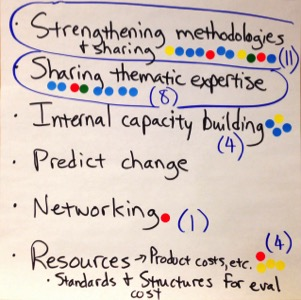 • Strengthening methodologies
& sharing (11)
• Sharing thematic expertise
(8)
• Internal capacity building
(4)
• Predict change
• Networking (1)
(4)
• Resources → Product costs, etc.
• Standards & Structures for eval
cost